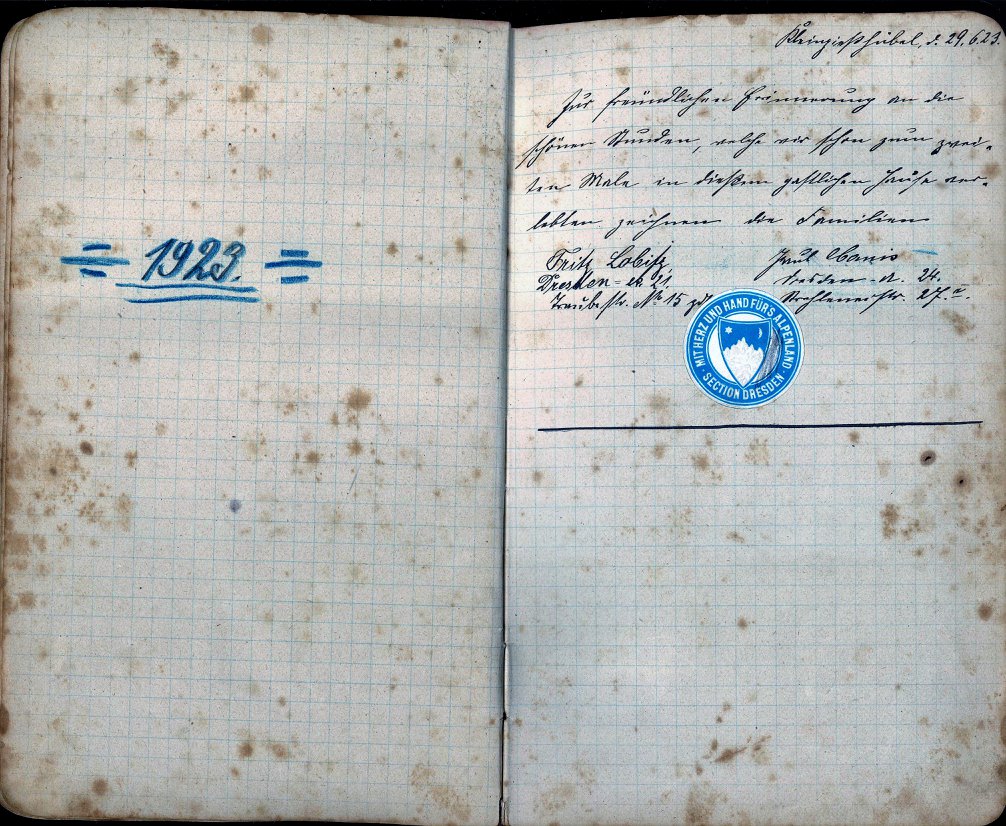 = 1923. =
Kleingießhübel, d. 29.6.23.
Zur freundlichen Erinnerung an die
schönen Stunden, welche wir schon zum zwei-
ten Male in dießem gastlichen Hause ver-
lebten zeichnen die Familien
Fritz Lobitz,
Dresden - 21.
Traubestr. No 15
Paul
Dresden - A. 24.
27. II.
MIT HERZ UND HAND FÜR'S ALPENLAND
SECTION DRESDEN